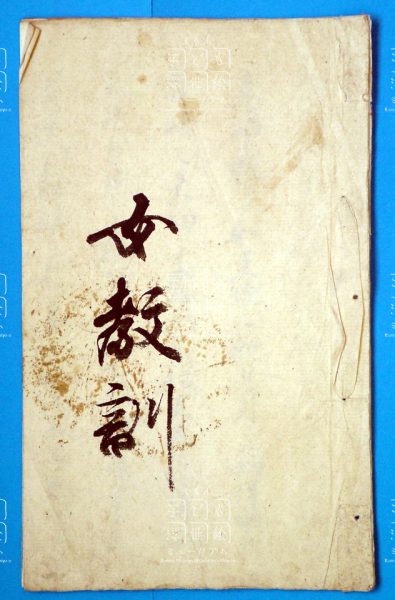 女教訓